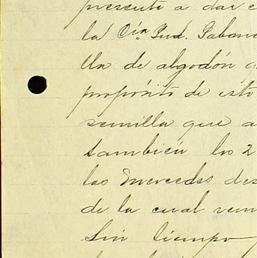 presento a dar c
la Cía Ind. Sabana
lla de algodón d
propósito de esto
semilla que a
también los 2
las Mercedes des
de la cual rem
Sin tiempo